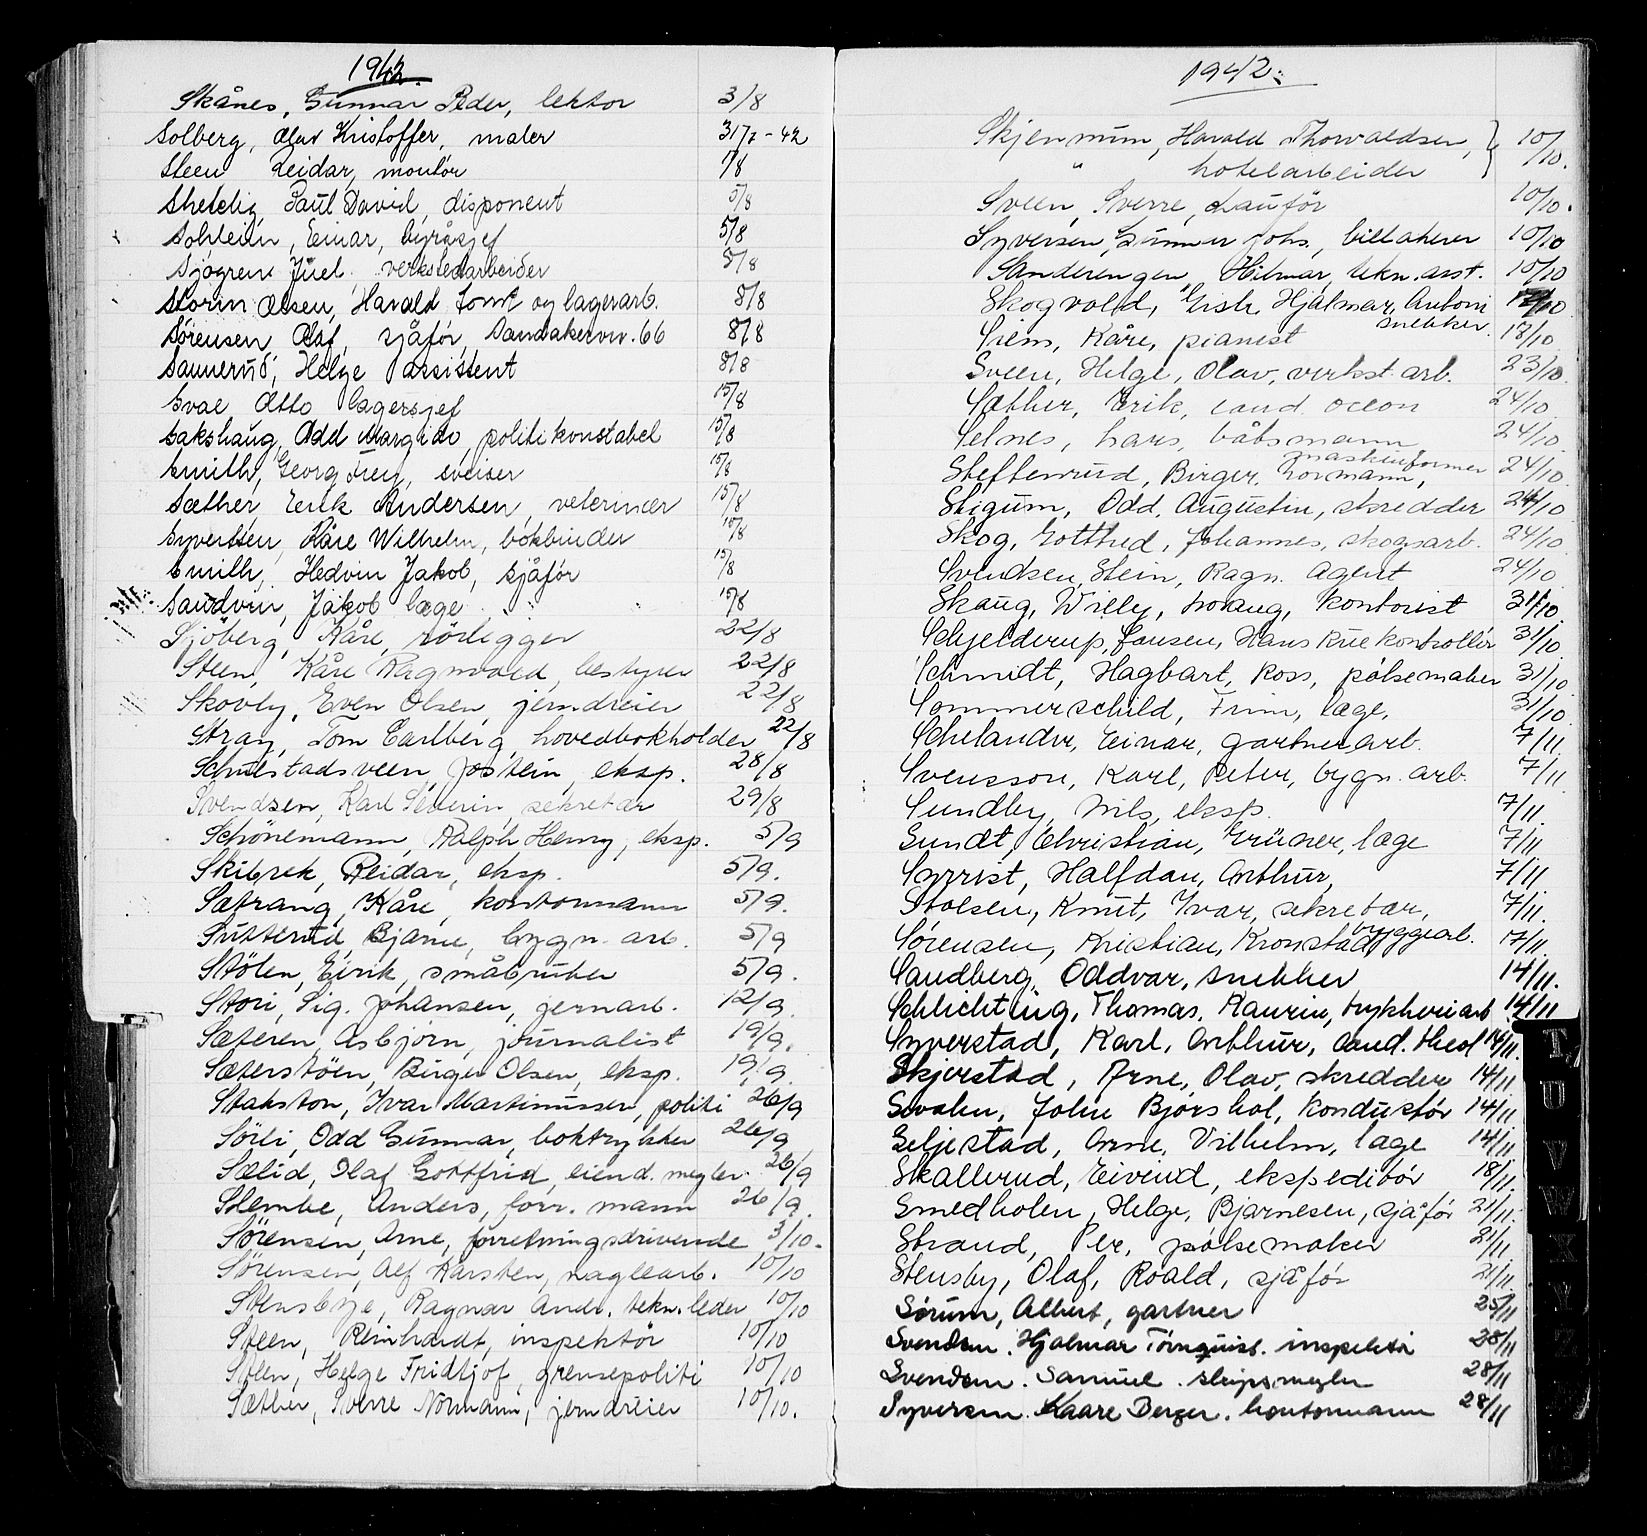 1942
Skånes, Gunnar Peder, lektor 3/8
Solberg, Olav Kristoffer, maler 31/7-42
Steen Reidar, montör 1/8
Shetelig, Paul David, disponent 5/8
Sohlein, Einar, byråsjef 5/8
Sjögren Juel verkstedarbeider 5/8
Storm Olsen, Harald tomt og lagerarb. 8/8
Sörensen, Olaf, sjåför, Sandakervn. 66 8/8
Sannerud, Helge assistent 8/8
Svae Otto lagersjef 15/8
Sakshaug, Odd Margido, politikonstabel 15/8
Smith, Georg Frey, sveiser 15/8
Sæther, Eirik Andersen, veterinær 15/8
Syvertsen, Kåre Wilhelm, bokbinder 10/8
Smith, Hedvin Jakob, sjåför 15/8
Sandvin, Jakob læge 15/8
Sjöberg, Kåre, rörlegger 22/8
Steen, Kåre Ragnvald, bestyrer 22/8
Skovly, Even Olsen, jerndreier 22/8
Stray, Tom Carlberg, hovedbokholder 22/8
Schulstadsveen, Jostein, eksp. 28/8
Svendsen, Karl Severin, sekretær 29/8
Schönemann, Ralph Henry, eksp. 5/9
Skibrek, Reidar, eksp. 5/9.
Sætrang, Kåre, kontormann 5/9.
Sutterud, Bjarne, bygn. arb. 5/9
Stölen, Eirik, småbruker 5/9.
Stori, Sig. Johansen, jernarb. 12/9.
Sæteren, Asbjörn, journalist 19/9.
Sæterstöen, Birger Olsen, eksp. 19/9.
Stakston, Ivar Martinussen, politi 26/9
Sörli, Odd Gunnar, boktrykker 26/9
Sælid, Olaf Gottfrid, eiend. megler. 26/9
Slembe, Anders, forr. mann 26/9.
Sörensen, Arne, forretningsdrivende 3/10.
Sörensen, Alf Karsten, naglearb. 10/10
Stensbye, Ragnar Andr. tekn. leder 10/10
Steen, Reinhardt, inspektör 10/10
Steen, Helge Fridtjof, grensepoliti 10/10
Sæther, Sverre Normann, jerndreier 10/10.
1942.
Skjennum, Harald Thorvaldsen, 10/10.
" hotelarbeider
Sveen, Sverre, chauför 10/10.
Syversen, Gunnar Johs, billakerer 10/10
Sanderengen, Hilmar, tekn. asst. 10/10
Skogvold, Hjalmar, Antoni 17/10
snekker.
Srem, Kåre, pianist 18/10
Sveen, Helge, Olav, verkst. arb. 23/10
Sæther, Erik, cand. oecon 24/10
Selnes, Lars, båtsmann 24/10
maskinformer
Steffenrud, Birger, Normann, 24/10
Stigum, Odd, Augustin, skredder 24/10
Skog, Gottfred, Johannes, skogsarb. 24/10
Svendsen, Stein, Ragn. Agent 24/10
Skaug, Willy, kontorist 31/10
Schjelderup, Jansen, Hans Rue kontrollör 31/10
Schmidt, Hagbart, Ross, pölsemaker 31/10
Sommerschild, Finn, læge, 31/10
Schelander, Einar, gartnerarb. 7/11
Svensson, Karl, Peter, bygn. arb. 7/11
Sundby, Nils, eksp. 7/11.
Sundt, Christian, Grüner, læge 7/11
Syrrist, Halfdan, Arthur, 7/11
Stolsen, Knut, Ivar, sekretær, 7/11.
byggearb.
Sörensen, Kristian, Kronstad 7/11.
Sandberg, Oddvar, snekker 14/11.
Schlichting, Thomas, Kaurin, trykkeriarb 14/11
Syverstad, Karl, Arthur, Cand. theol 14/11.
Skjerstad, Arne, Olav, skredder 14/11
Svalen, John Björshol, konduktör 14/11
Seljestad, Arne, Vilhelm, læge 14/11
Skallerud, Eivind, ekspeditör 18/11
Smedholen, Helge, Bjarnesen, sjåför 21/11.
Strand, Per, pölsemaker 21/11.
Stensby, Olaf, Roald, sjåför 21/11
Sörum, Albert, gartner 25/11
Svendsen. Hjalmar Törnquist. inspektör 28/11
Svendsen. Samuel. skipsmegler 28/11
Syversen. Kaare Berger. kontormann 28/11
T
U
V
W
X
Y
Z
Æ
Ø